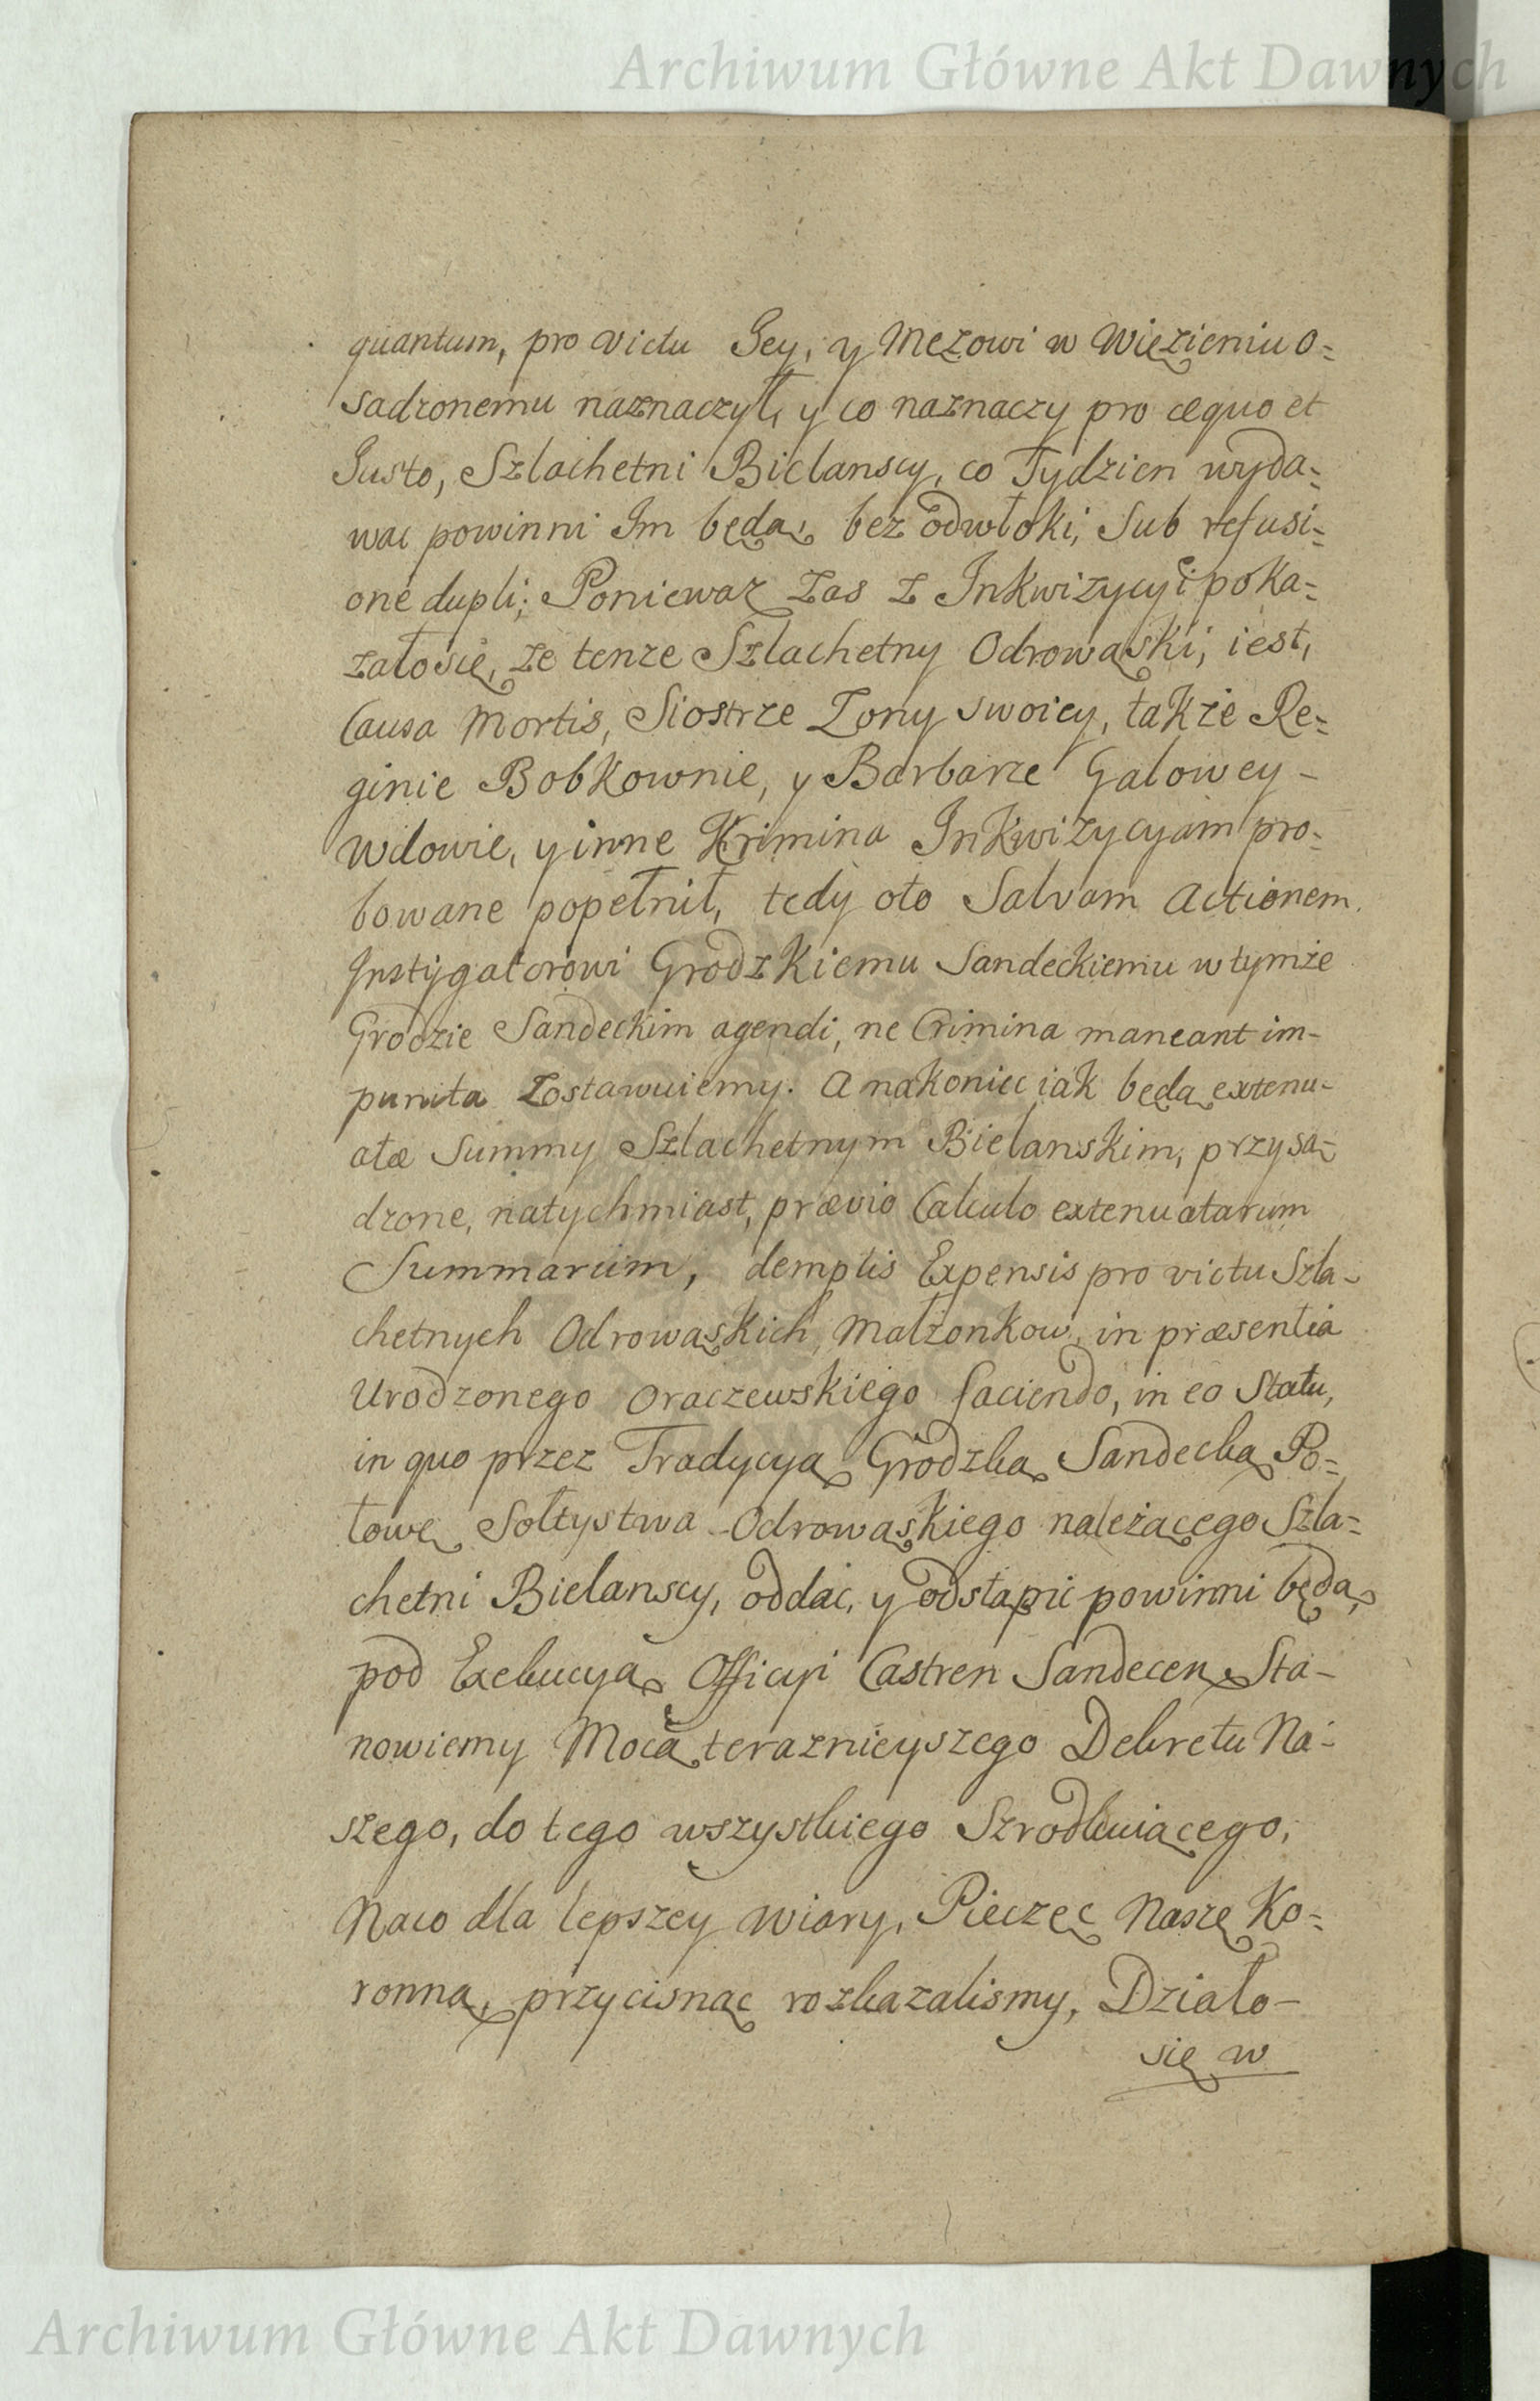 Archiwum Główne Akt Dawnych
quantum, pro victu Jey, y Mezowi w Więzieniu o=
sadzonemu naznaczył, y co naznaczy pro æquo et
Justo, Szlachetni Bielanscy, co Tydzien wyda=
wac powinni Im będą, bez odwłoki, Sub refusi=
one dupli; Poniewaz zas z Inkwizycyi poka=
załosię, ze tenze Szlachetny Odrowąski, iest,
Causa Mortis, Siostrze Zony swoiey, takze Re=
ginie Bobkownie, y Barbarze Galowey -
Wdowie, y inne Krimina Inkwizycyam pro=
bowane popełnił, tedy oto Salvam Actionem
Instygatorowi Grodzkiemu Sandeckiemu w tymze
Grodzie Sandeckim agendi, ne Crimina maneant im-
punita Zostawuiemy. A nakoniec iak będą extenu-
atæ Summy Szlachetnym Bielanskim, przysą-
dzone, natychmiast, prævio Calculo extenuatarum
Summarum, demptis Expensis pro victu Szla-
chetnych Odrowąskich, Małzonkow, in præsentia
Urodzonego Oraczewskiego faciendo, in eo Statu,
in quo przez Tradycyą Grodzką Sandecką Po=
łowę Sołtystwa Odrowąskiego nalezącego Szla=
chetni Bielanscy, oddac, y odstąpic powinni będą,
pod Exekucyą Officyi Castren Sandecen Sta-
nowiemy Mocą teraznieyszego Dekretu Na-
szego, do tego wszystkiego Szrodkuiącego,
Naco dla lepszey wiary, Pieczęc Naszę Ko=
ronną, przycisnąc rozkazalismy, Działo-
się w
Archiwum Główne Akt Dawnych